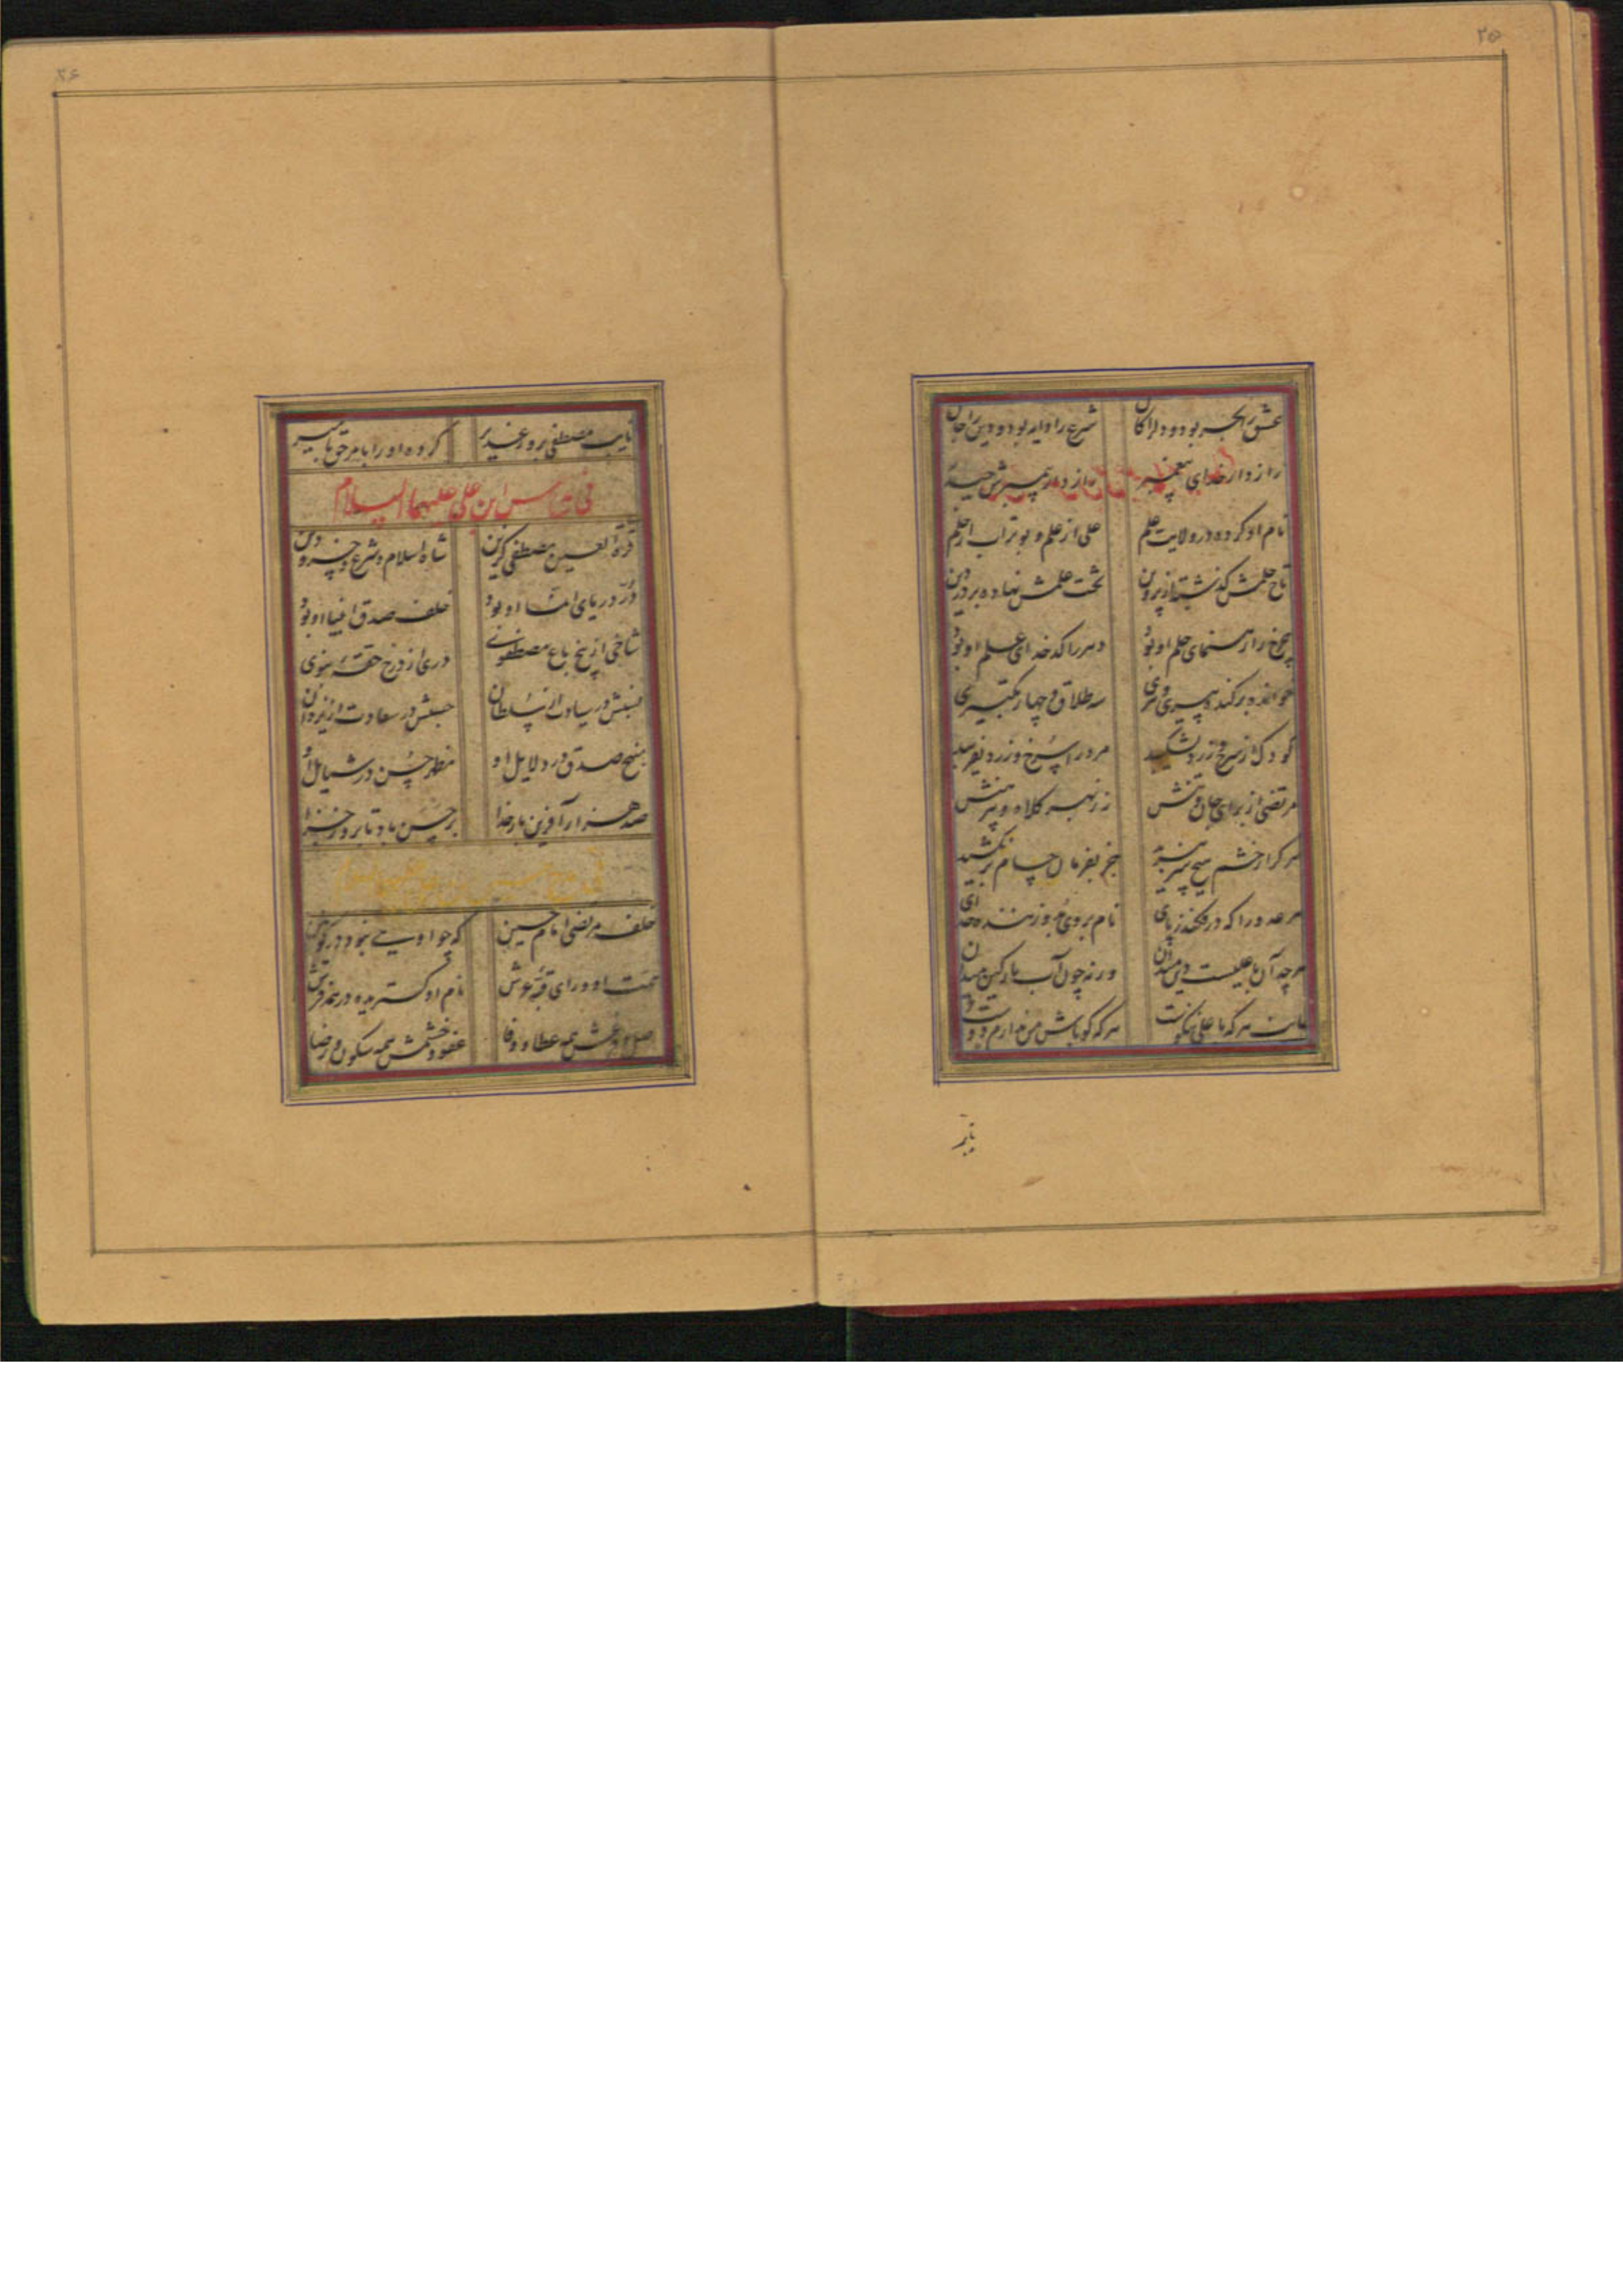 ۲۵
عشق را بحر بود و دل را کان شرع را دیده بود و دین را جان
رازدار خدای پیغمبر رازدار پیمبرش حیدر
نام او کرده در ولایت علم علی از علم و بوتراب از حلم
تاج حلمش گذشته از پروین تخت علمش نهاده بر در دین
چرخ را رهنمای حلم او بود دهر را کدخدای علم او بود
خوانده بر گنده پیر سه طلاق و چهار تکبیری
کودک از سرخ و زرد بشکیبد مرد را سرخ و زرد نفریبد
مرتضی از برای جان و تنش زر نهیبد کلاه و پیرهنش
هر کرا خشم تیغ جز بفرمان حسام بر نکشید
هر عدو را که در فکند ز پای نام بر وی بزننده خدای
هر چه آن با علیست دین میدان ورنه چون آب پارگین میدان
جانب هر که با علی نه نکوست هر که گو باش من ندارم دوست
نایب
۲۶
نایب مصطفی بروز غدیر کرده او را بامر حق تا بمیر
علی علیهما السلام
قرة العین مصطفی گزین شاه اسلام و شرع و خسرو دین
در دریای او بود خلف صدق انبیا او بود
شاخی از بیخ باغ مصطفوی دری از درج حقه نبوی
نسبش در سیادت از سلطان حسبش در سعادت از یزدان
منهج صدق در دلایل او مظهر حسن در شمایل او
صد هزار آفرین بار خدا بر حسن باد تا بروز جزا
خلف مرتضی امام حسین که چو اویی نبود در کونین
همت او ورای قبه عرش نام او گستریده در همه فرش
اصل و همه عطا و وفا عفو و خشمش همه سکون و رضا